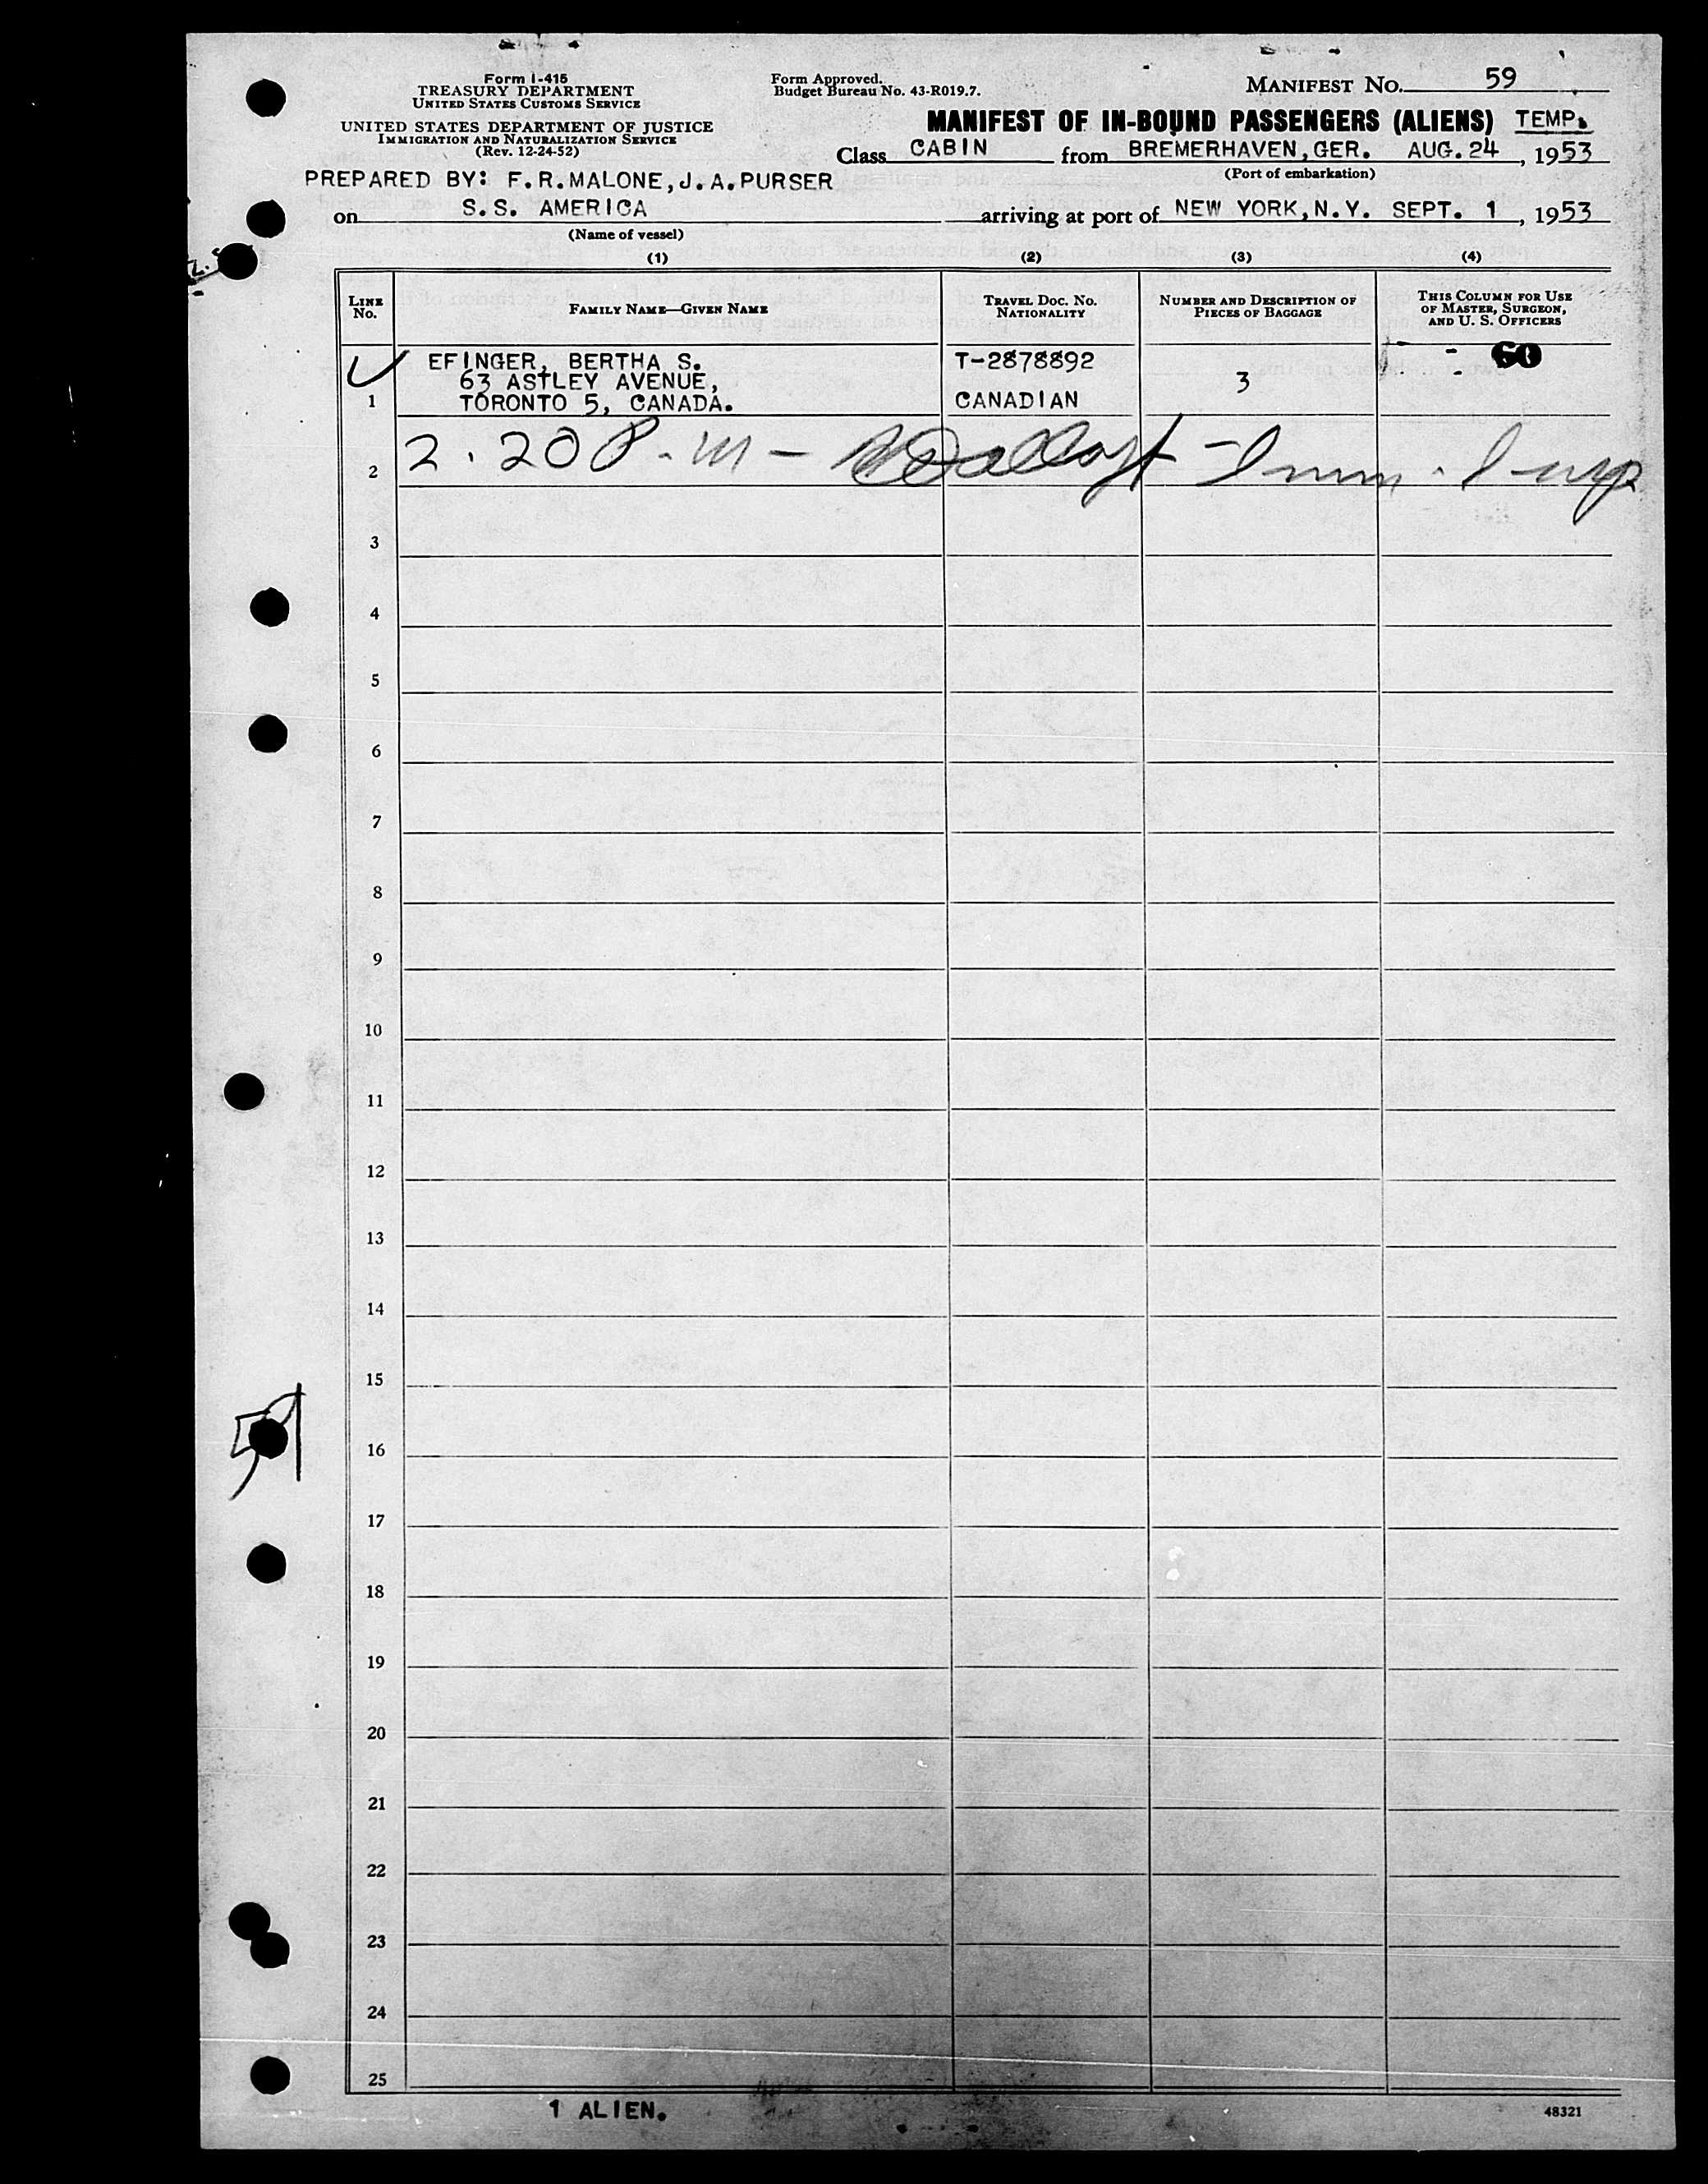 Form I-415
TREASURY DEPARTMENT
UNITED STATES CUSTOMS SERVICE
UNITED STATES DEPARTMENT OF JUSTICE
IMMIGRATION AND NATURALIZATION SERVICE
(Rev. 12-24-52)
Form Approved.
Budget Bureau No. 43-R019.7.
MANIFEST NO. 59
MANIFEST OF IN-BOUND PASSENGERS (ALIENS) TEMP.
Class CABIN from BREMERHAVEN, GER. AUG. 24, 1953
(Port of embarkation)
PREPARED BY: F.R.MALONE, J.A.PURSER
on S.S. AMERICA arriving at port of NEW YORK, N.Y. SEPT. 1, 1953
(Name of vessel)
(1) (2) (3) (4)
LINE No.
FAMILY NAME—GIVEN NAME
TRAVEL DOC. NO. NATIONALITY
NUMBER AND DESCRIPTION OF PIECES OF BAGGAGE
THIS COLUMN FOR USE OF MASTER, SURGEON, AND U. S. OFFICERS
EFINGER, BERTHA S. T-2878892 60
63 ASTLEY AVENUE, 3
1 TORONTO 5, CANADA. CANADIAN
2 2.20 P.m -
3
4
5
6
7
8
9
10
11
12
13
14
15
59
16
17
18
19
20
21
22
23
24
25
1 ALIEN.
48321